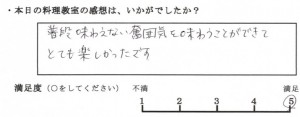 ・本日の料理教室の感想は、いかがでしたか?
普段味わえない雰囲気を味わうことができて
とても楽しかったです
満足度(○をしてください) 不満 満足
1 2 3 4 5